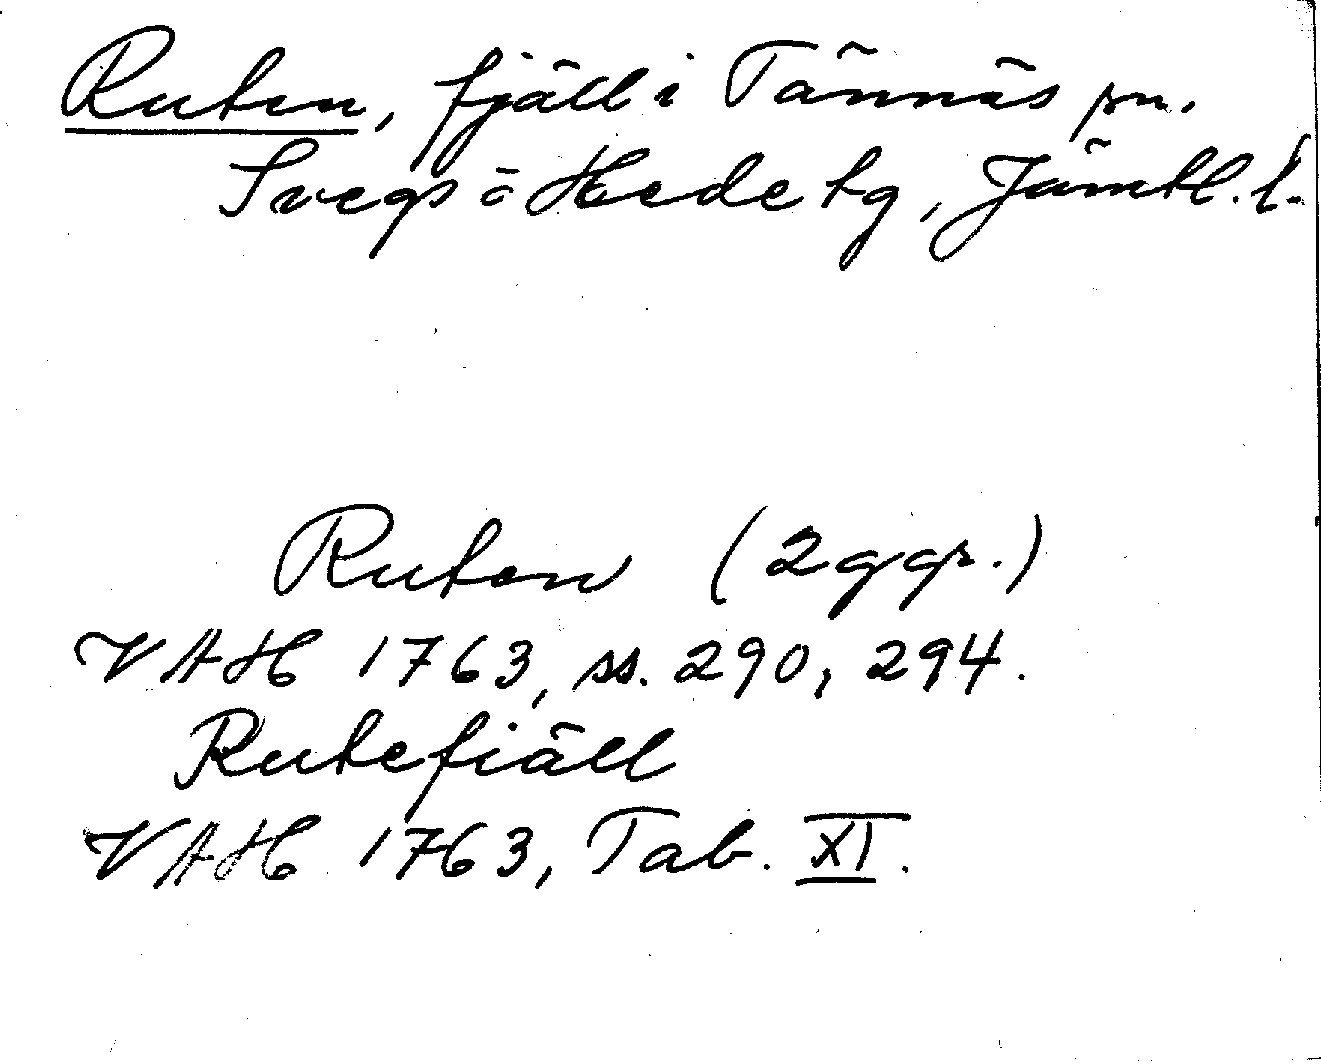 Ruten, fjäll i Tännäs sn.
Svegs o Hede tg, Jämtl. l.
Ruten (2 ggr.)
VAH 1763, ss. 290, 294.
Rutefiäll
VAH 1763, Tab. XI.